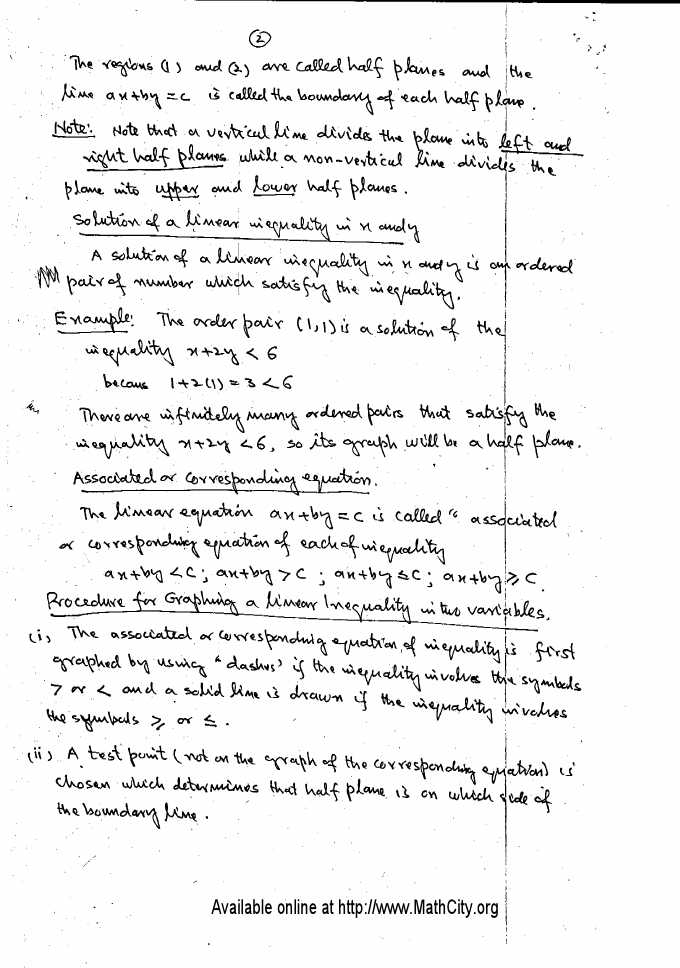 2
The regions (1) and (2) are called half planes and the
line ax+by =c is called the boundary of each half plane.
Note: Note that a vertical line divides the plane into left and
right half planes while a non-vertical line divides the
plane into upper and lower half planes.
Solution of a linear inequality in x and y
A solution of a linear inequality in x and y is an ordered
pair of number which satisfy the inequality.
Example: The order pair (1,1) is a solution of the
inequality x+2y < 6
becaus 1+2(1) = 3 < 6
There are infinitely many ordered pairs that satisfy the
inequality x+2y <6, so its graph will be a half plane.
Associated or corresponding equation.
The linear equation ax+by = c is called “ associated
or corresponding equation of each of inequality
ax+by <C ; ax+by > C ; ax+by ≤ C ; ax+by ≥ C.
Procedure for Graphing a linear Inequality in two variables.
(i) The associated or corresponding equation of inequality is first
graphed by using “dashes” if the inequality involves the symbols
> or < and a solid line is drawn if the inequality involves
the symbols ≥ or ≤ .
(ii) A test point (not on the graph of the corresponding equation) is
chosen which determines that half plane is on which side of
the boundary line.
Available online at http://www.MathCity.org